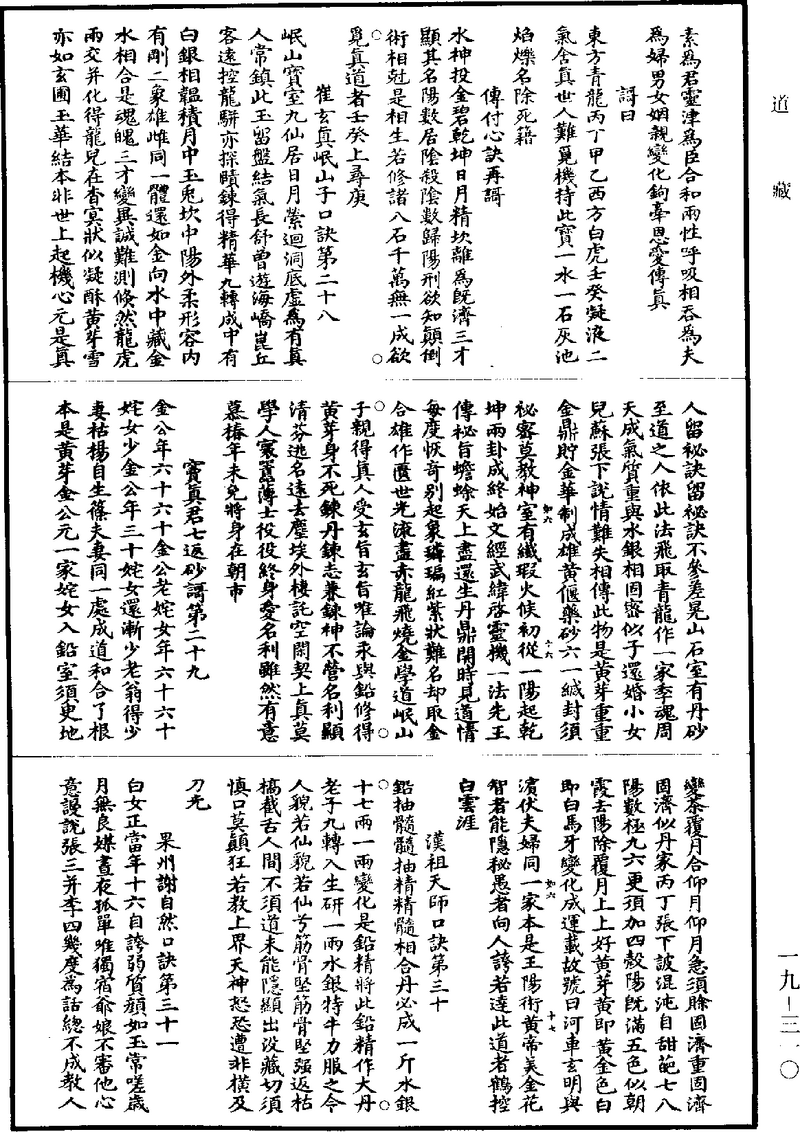 道藏
素為君靈津為臣合和兩性呼吸相吞為夫
為婦男女姻親變化鉤牽恩愛傳真
謌曰
東方青龍丙丁甲乙西方白虎壬癸凝液二
氣含真世人難覓機持此寶一水一石灰池
焰爍名除死籍
傳付心訣再謌
水神投金碧乾坤日月精坎離為旣濟三才
顯其名陽數居陰殺陰數歸陽刑欲知顛倒
術相尅是相生若修諸八石千萬無一成欲
覓真道者壬癸上尋庚
崔玄真岷山子口訣第二十八
岷山寶室九仙居日月縈迴洞底虛為有真
人常鎮此玉留盤結氣長舒曾遊海嶠崑丘
客遠控龍駢亦探賾鍊得精華九轉成中有
白銀相韞積月中玉兎坎中陽外柔形容內
有剛二象雄雌同一體還如金向水中藏金
水相合是魂魄三才變異誠難測倐然龍虎
兩交并化得龍兒在杳冥狀似凝酥黃芽雪
亦如玄圃玉華結本非世上起機心元是真
人留祕訣留祕訣不參差晃山石室有丹砂
至道之人依此法飛取青龍作一家季魂周
天成氣質重與水銀相固密似子還婚小女
兒蘇張下說情難失相傳此物是黃芽重重
金鼎貯金華制成雄黃偃藥砂六一緘封須
祕密莫教神室有纖瑕火候初從一陽起乾
坤兩卦成終始文經武緯啓靈機一法先王
傳祕旨蟾蜍天上盡還生丹鼎開時見道情
每度恢奇別起象璘㻞紅紫狀難名却取金
合雄作匱世光流盡赤龍飛燒金學道岷山
子親得真人受玄旨玄旨唯論汞與鉛修得
黃芽身不死鍊丹鍊志兼鍊神不營名利顯
清芬逃名遠去塵埃外棲託空閑契上真莫
學人寰囂薄士役役終身愛名利雖然有意
慕椿年未免將身在朝市
寶真君七返砂謌第二十九
金公年六十六十金公老姹女年六十六十
姹女少金公年三十姹女還漸少老翁得少
妻枯楊自生篠夫妻同一處成道和合了根
本是黃芽金公元一家姹女入鉛室須更地
變茶覆月合仰月仰月急須賒固濟重固濟
固濟似丹家丙丁張下詖混沌自甜葩七八
陽數極九六更須加四殼陽旣滿五色似朝
霞去陽除覆月上上好黃芽黃即黃金色白
即白馬牙變化成運載故號曰河車玄明與
濱伏夫婦同一家本是王陽術黃帝美金花
智者能隱祕愚者向人誇若達此道者鶴控
白雲涯
漢祖天師口訣第三十
鉛抽髓髓抽精精髓相合丹必成一斤水銀
十七兩一兩變化是鉛精將此鉛精作大丹
老子九轉入生研一兩水銀特牛力服之令
人貌若仙貌若仙兮筋骨堅筋骨堅强返枯
槁截舌人間不須道未能隱顯出没藏切須
慎口莫顛狂若教上界天神怒恐遭非橫及
刀光
果州謝自然口訣第三十一
白女正當年十六自誇弱質顏如玉常嗟歲
月無良媒晝夜孤單唯獨宿爺娘不審他心
意謾說張三并李四幾度為話總不成教人
一九－三一〇